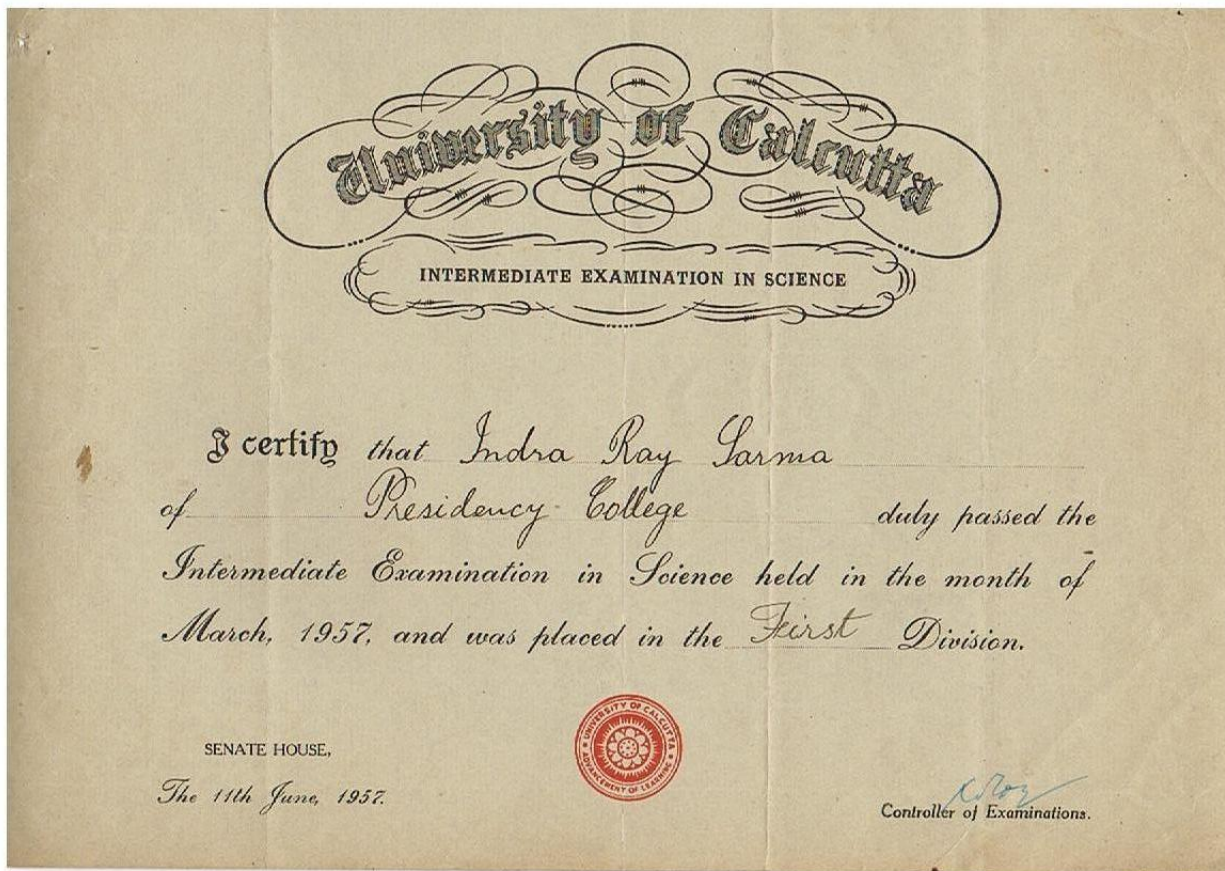 University of Calcutta
INTERMEDIATE EXAMINATION IN SCIENCE
I certify that Indra Ray Sarma
of Presidency College duly passed the
Intermediate Examination in Science held in the month of
March, 1957, and was placed in the First Division.
UNIVERSITY OF CALCUTTA
ADVANCEMENT OF LEARNING
SENATE HOUSE,
The 11th June, 1957.
Controller of Examinations.